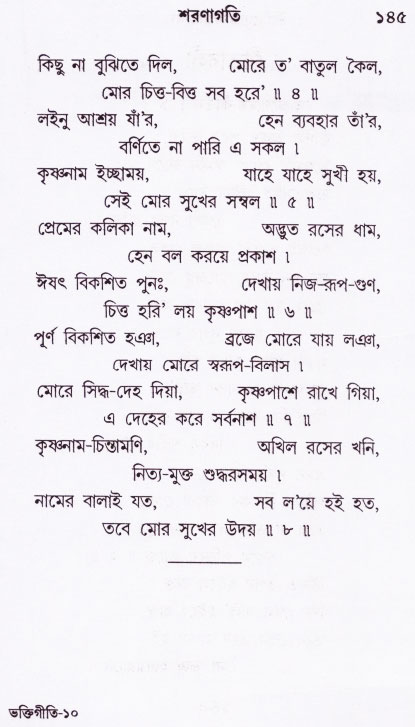 শরণাগতি ১৪৫
কিছু না বুঝিতে দিল, মোরে ত’ বাতুল কৈল,
মোর চিত্ত-বিত্ত সব হরে’ ॥ ৪ ॥
লইনু আশ্রয় যাঁ’র, হেন ব্যবহার তাঁ’র,
বর্ণিতে না পারি এ সকল ।
কৃষ্ণনাম ইচ্ছাময়, যাহে যাহে সুখী হয়,
সেই মোর সুখের সম্বল ॥ ৫ ॥
প্রেমের কলিকা নাম, অদ্ভুত রসের ধাম,
হেন বল করয়ে প্রকাশ ।
ঈষৎ বিকশিত পুনঃ, দেখায় নিজ-রূপ-গুণ,
চিত্ত হরি’ লয় কৃষ্ণপাশ ॥ ৬ ॥
পূর্ণ বিকশিত হঞা, ব্রজে মোরে যায় লঞা,
দেখায় মোরে স্বরূপ-বিলাস ।
মোরে সিদ্ধ-দেহ দিয়া, কৃষ্ণপাশে রাখে গিয়া,
এ দেহের করে সর্বনাশ ॥ ৭ ॥
কৃষ্ণনাম-চিন্তামণি, অখিল রসের খনি,
নিত্য-মুক্ত শুদ্ধরসময় ।
নামের বালাই যত, সব ল’য়ে হই হত,
তবে মোর সুখের উদয় ॥ ৮ ॥
ভক্তিগীতি-১০